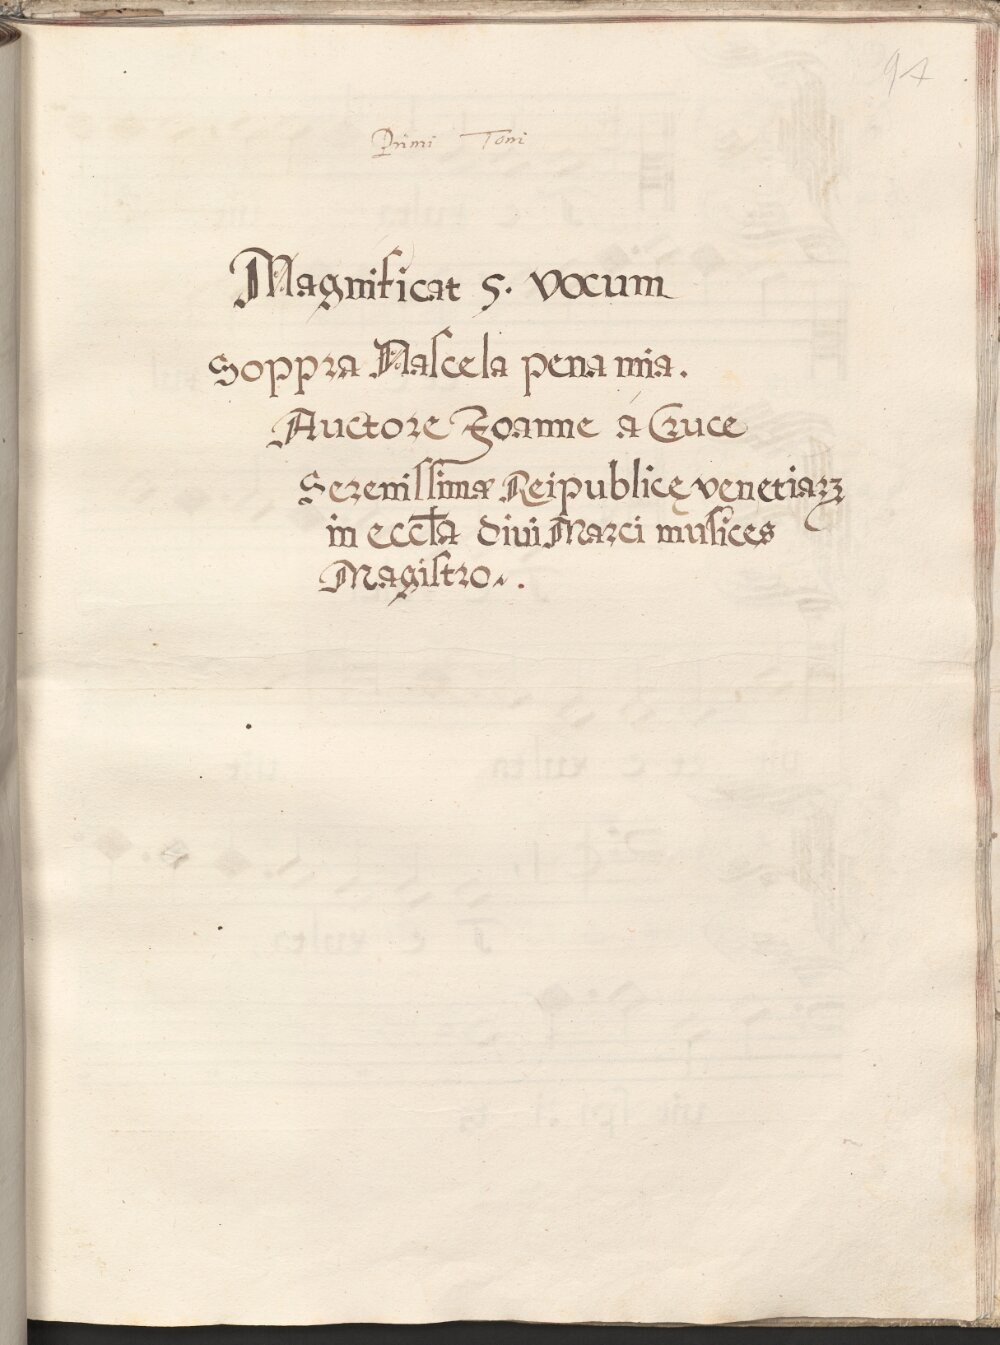 94
Primi Toni
Magnificat 5. vocum
Soppra Nasce la pena mia.
Auctore Ioanne á Cruce
Serenissimæ Reipublicę venetiarꝝ
in eccl̅a divi Marci musices
Magistro.